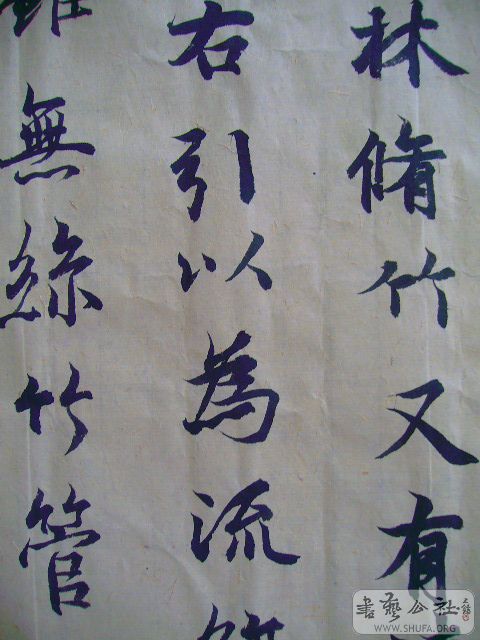 林脩竹又有
右引以為流
無絲竹管
書藝公社
WWW.SHUFA.ORG